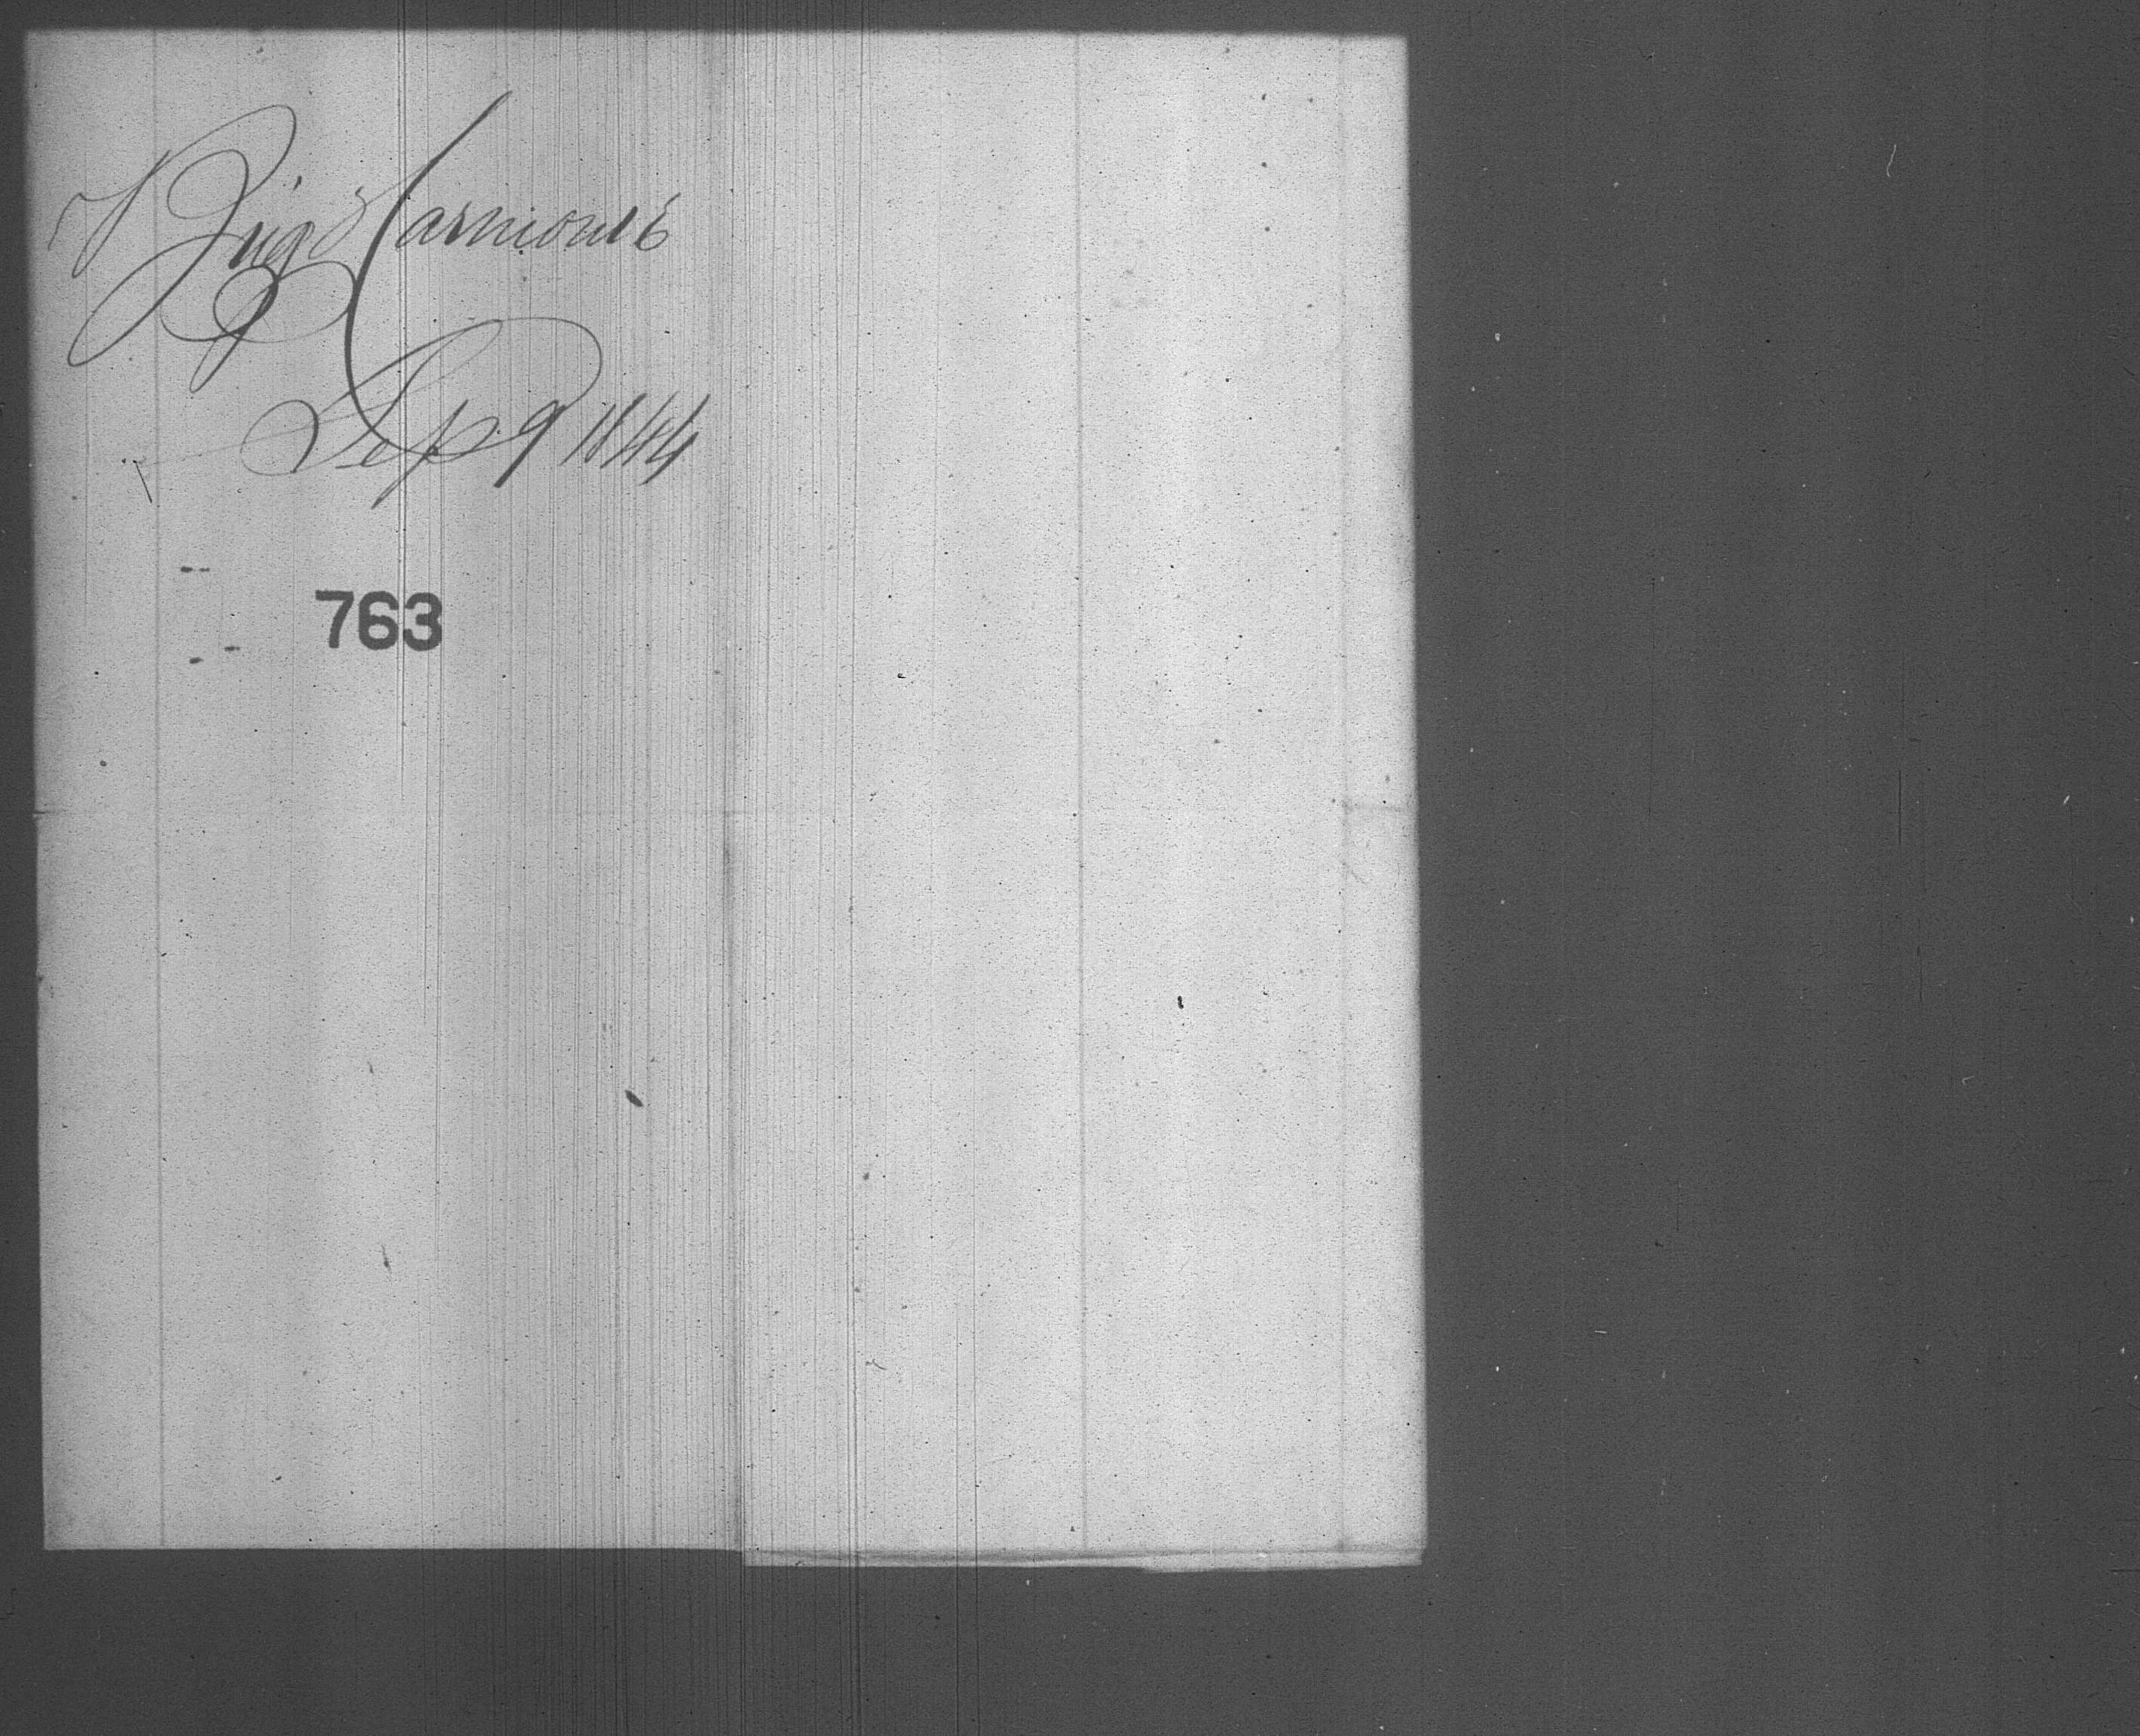 Brig Carmoule
Sep 9 1844
763